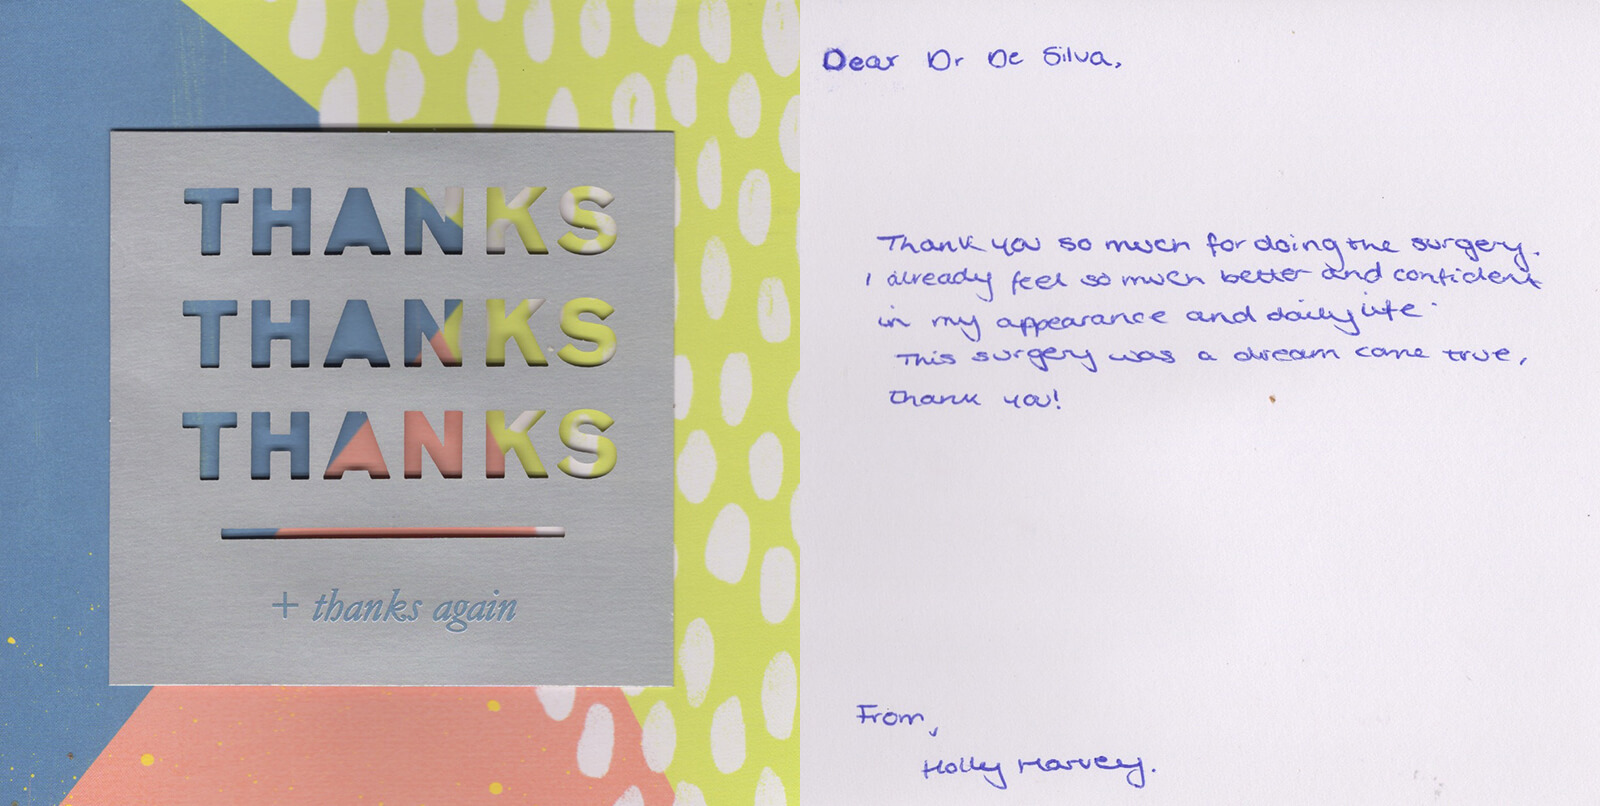 THANKS
THANKS
THANKS
+ thanks again
Dear Dr De Silva,
Thank you so much for doing the surgery.
I already feel so much better and confident
in my appearance and daily life.
This surgery was a dream come true,
thank you!
From,
Holly Harvey.